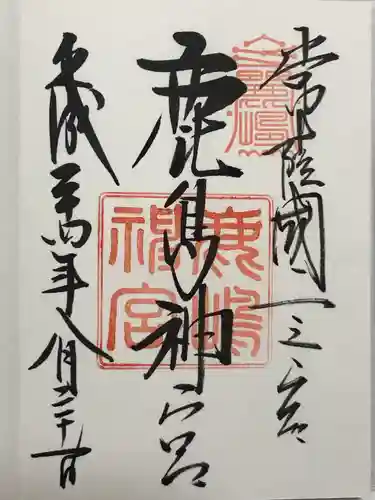 常陸國一之宮
鹿島神宮
鹿嶋神宮
平成二十四年八月二十一日